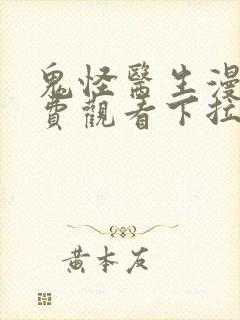 鬼怪醫生漫
費觀看下拉
黃本友